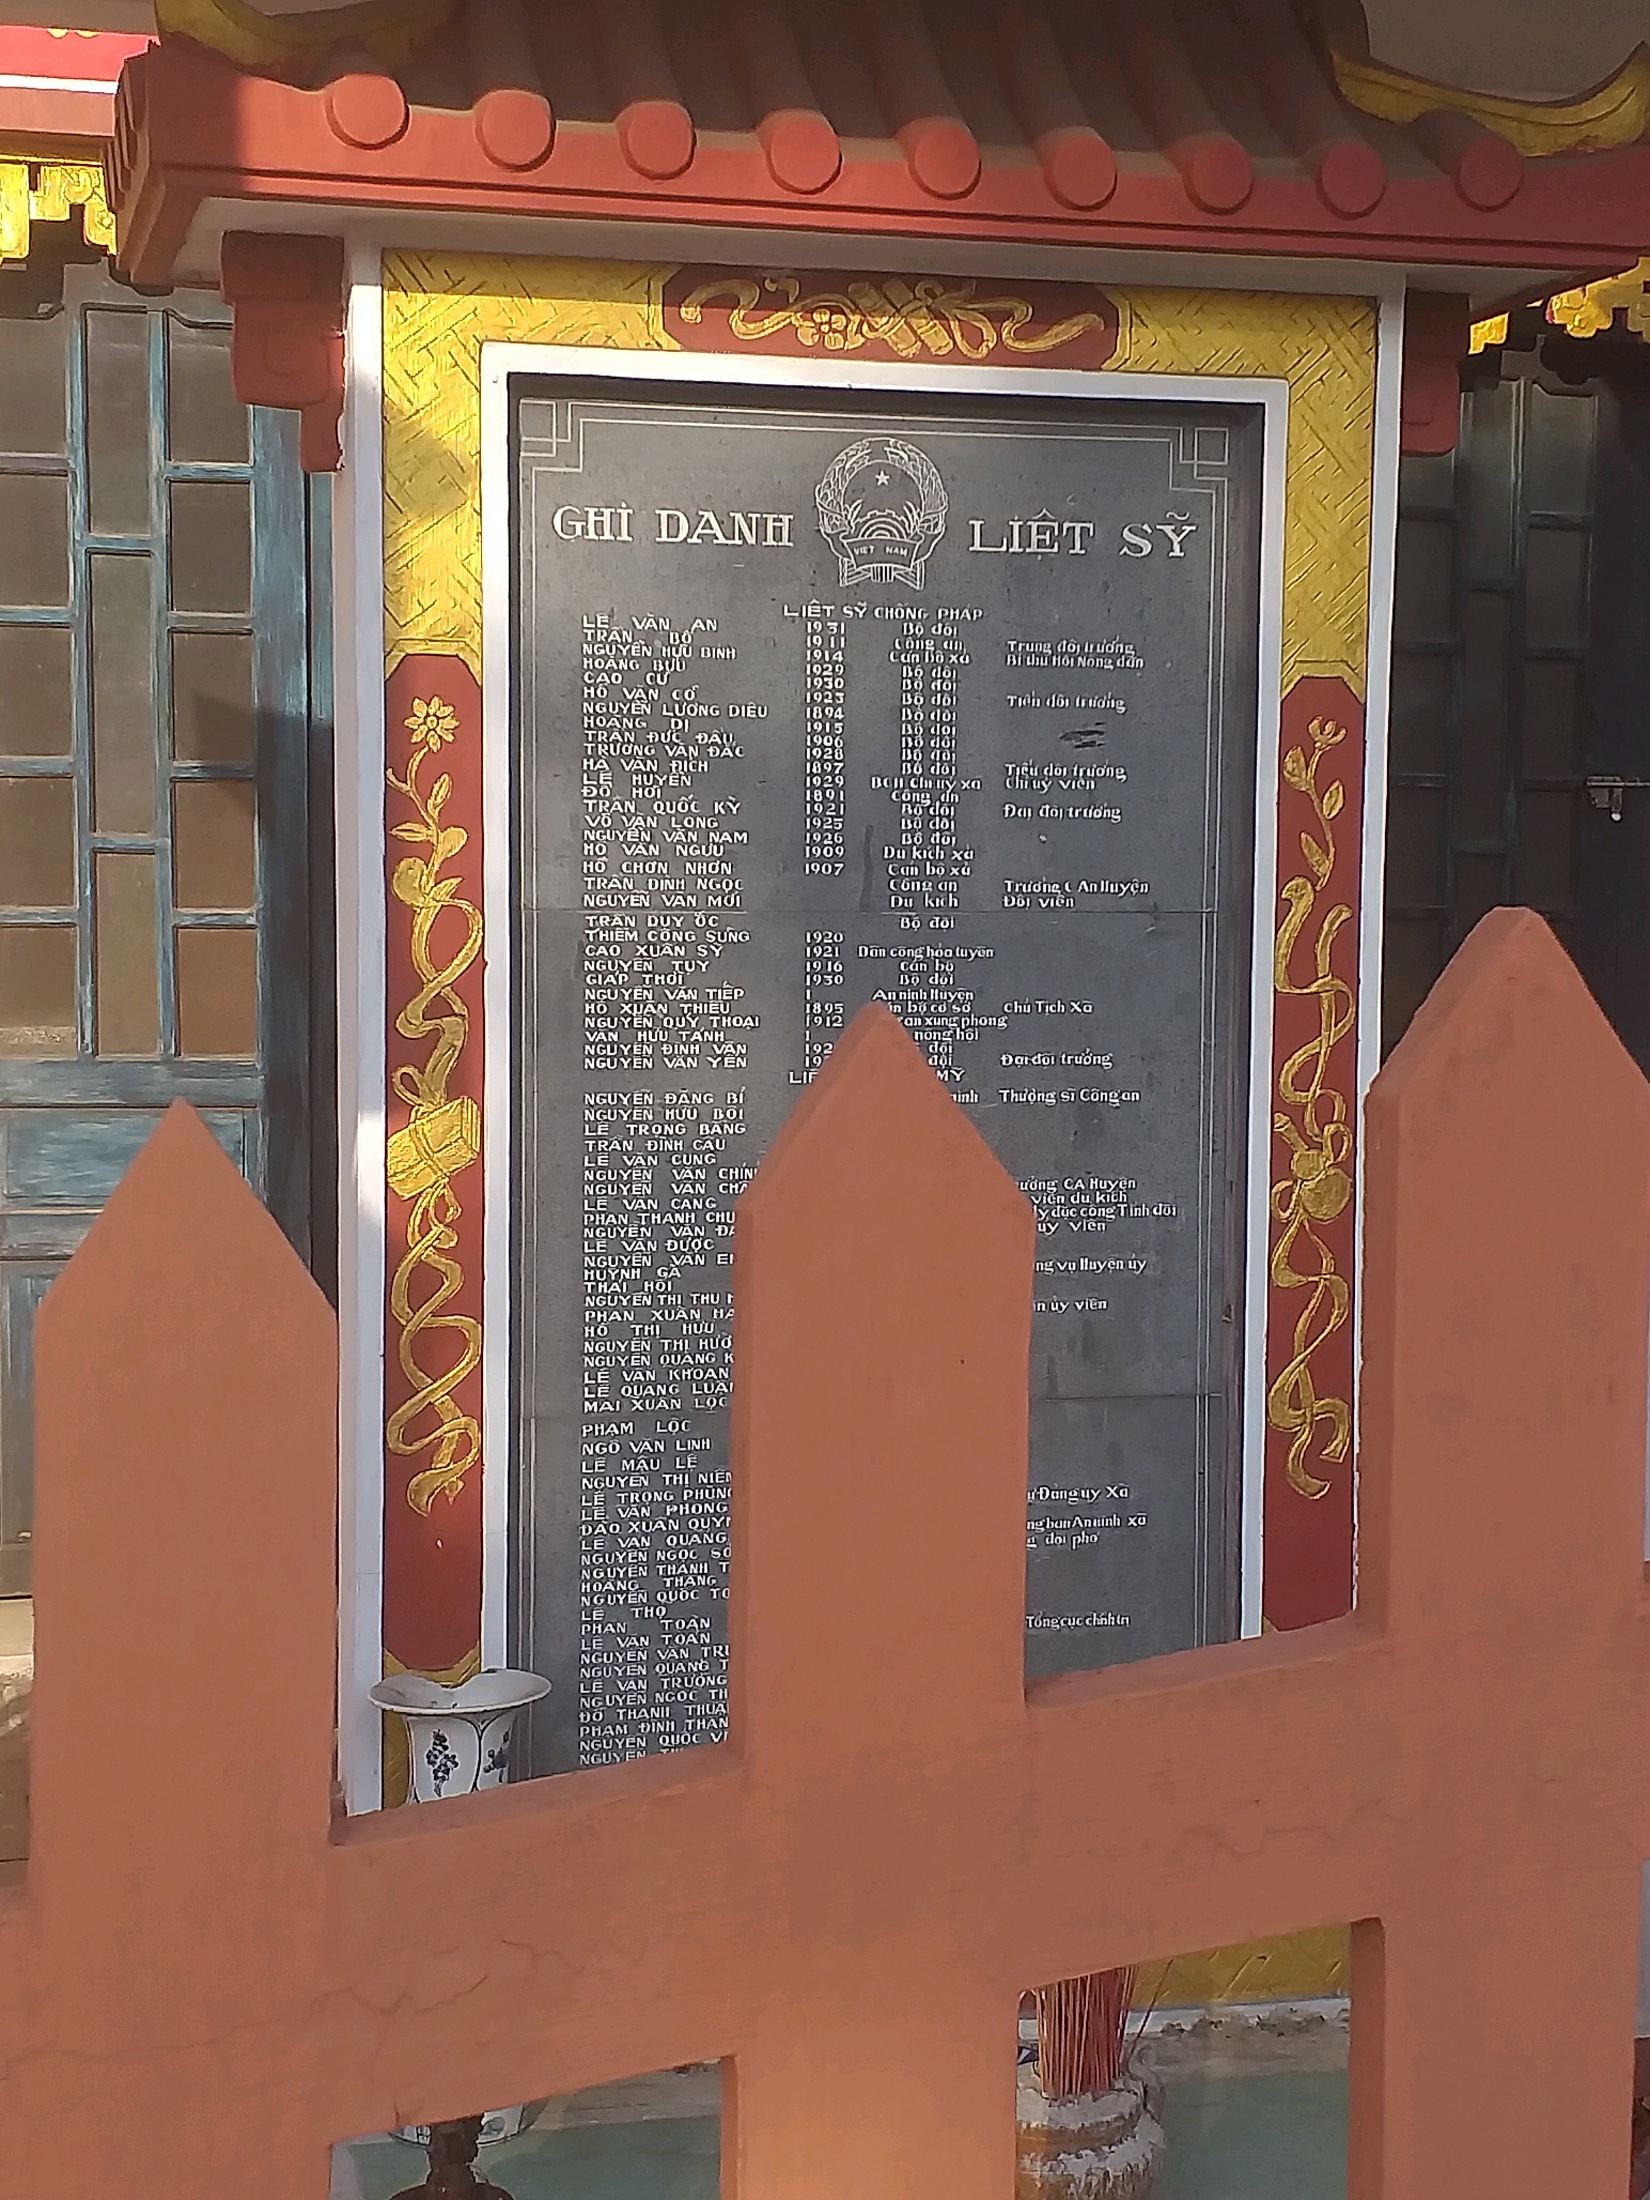 GHI DANH LIỆT SỸ
VIỆT NAM
LIỆT SỸ CHỐNG PHÁP
LÊ VĂN AN 1931 Bộ đội
TRẦN BÔ 1911 Công an Trung đội trưởng
NGUYỄN HỮU BINH 1914 Cán bộ xã Bí thư Hội Nông dân
HOÀNG BƯU 1929 Bộ đội
CAO CƯ 1930 Bộ đội
HỒ VĂN CƠ 1923 Bộ đội Tiểu đội trưởng
NGUYỄN LƯƠNG DIÊU 1894 Bộ đội
HOÀNG DỊ 1915 Bộ đội
TRẦN ĐỨC ĐẬU 1906 Bộ đội
TRƯƠNG VĂN ĐẮC 1928 Bộ đội
HÀ VĂN ĐỊCH 1897 Bộ đội Tiểu đội trưởng
LÊ HUYỀN 1929 BCH Chi ủy xã Chi uỷ viên
ĐỖ HƠI 1891 Công an
TRẦN QUỐC KỲ 1921 Bộ đội Đại đội trưởng
VÕ VĂN LONG 1925 Bộ đội
NGUYỄN VĂN NAM 1926 Bộ đội
HỒ VĂN NGƯU 1909 Du kích xã
HỒ CHƠN NHƠN 1907 Cán bộ xã
TRẦN ĐÌNH NGỌC Công an Trưởng C An Huyện
NGUYỄN VĂN MỚI Du kích Đội viên
TRẦN DUY ỐC Bộ đội
THIỀM CÔNG SUNG 1920
CAO XUÂN SỸ 1921 Dân công hỏa tuyến
NGUYỄN TUỴ 1916 Cán bộ
GIÁP THỚI 1930 Bộ đội
NGUYỄN VĂN TIẾP 1 An ninh Huyện
HỒ XUÂN THIỀU 1895 n bộ cơ sở Chủ Tịch Xã
NGUYỄN QUÝ THOẠI 1912 an xung phong
VĂN HỮU TÁNH 1 nông hội
NGUYỄN ĐÌNH VÂN 192 đội
NGUYỄN VĂN YÊN 19 đội Đại đội trưởng
LIỆ MỸ
NGUYỄN ĐĂNG BÍ ninh Thượng sĩ Công an
NGUYỄN HỮU BÔI
LÊ TRỌNG BĂNG
TRẦN ĐÌNH CẦU
LÊ VĂN CUNG
NGUYỄN VĂN CHÍN
NGUYỄN VĂN CHÂ ưởng CA Huyện
LÊ VĂN CANG viên du kích
PHAN THANH CHU lý đặc công Tỉnh đội
NGUYỄN VĂN ĐA uỷ viên
LÊ VĂN ĐƯỢC
NGUYỄN VĂN E ng vụ Huyện ủy
HUỲNH GÀ
THÁI HỐI
NGUYỄN THỊ THU H n ủy viên
PHAN XUÂN HA
HỒ THỊ HỮU
NGUYỄN THỊ HƯỜ
NGUYỄN QUANG K
LÊ VĂN KHOAN
LÊ QUANG LUÂ
MAI XUÂN LỘC
PHẠM LỘC
NGÔ VĂN LINH
LÊ MẬU LỆ
NGUYỄN THỊ NIÊ
LÊ TRỌNG PHÙNG ư Đảng uỷ Xã
LÊ VĂN PHONG
ĐÀO XUÂN QUY ng ban An ninh xã
LÊ VĂN QUANG g đội phó
NGUYỄN NGỌC SƠ
NGUYỄN THANH T
HOÀNG THĂNG
NGUYỄN QUỐC TO
LÊ THỌ
PHAN TOÀN Tổng cục chính trị
LÊ VĂN TOÀN
NGUYỄN VĂN TR
NGUYỄN QUANG T
LÊ VĂN TRƯỜNG
NGUYỄN NGỌC TH
ĐỖ THANH THUẬ
PHẠM ĐÌNH THAN
NGUYỄN QUỐC VI
NGUYỄN